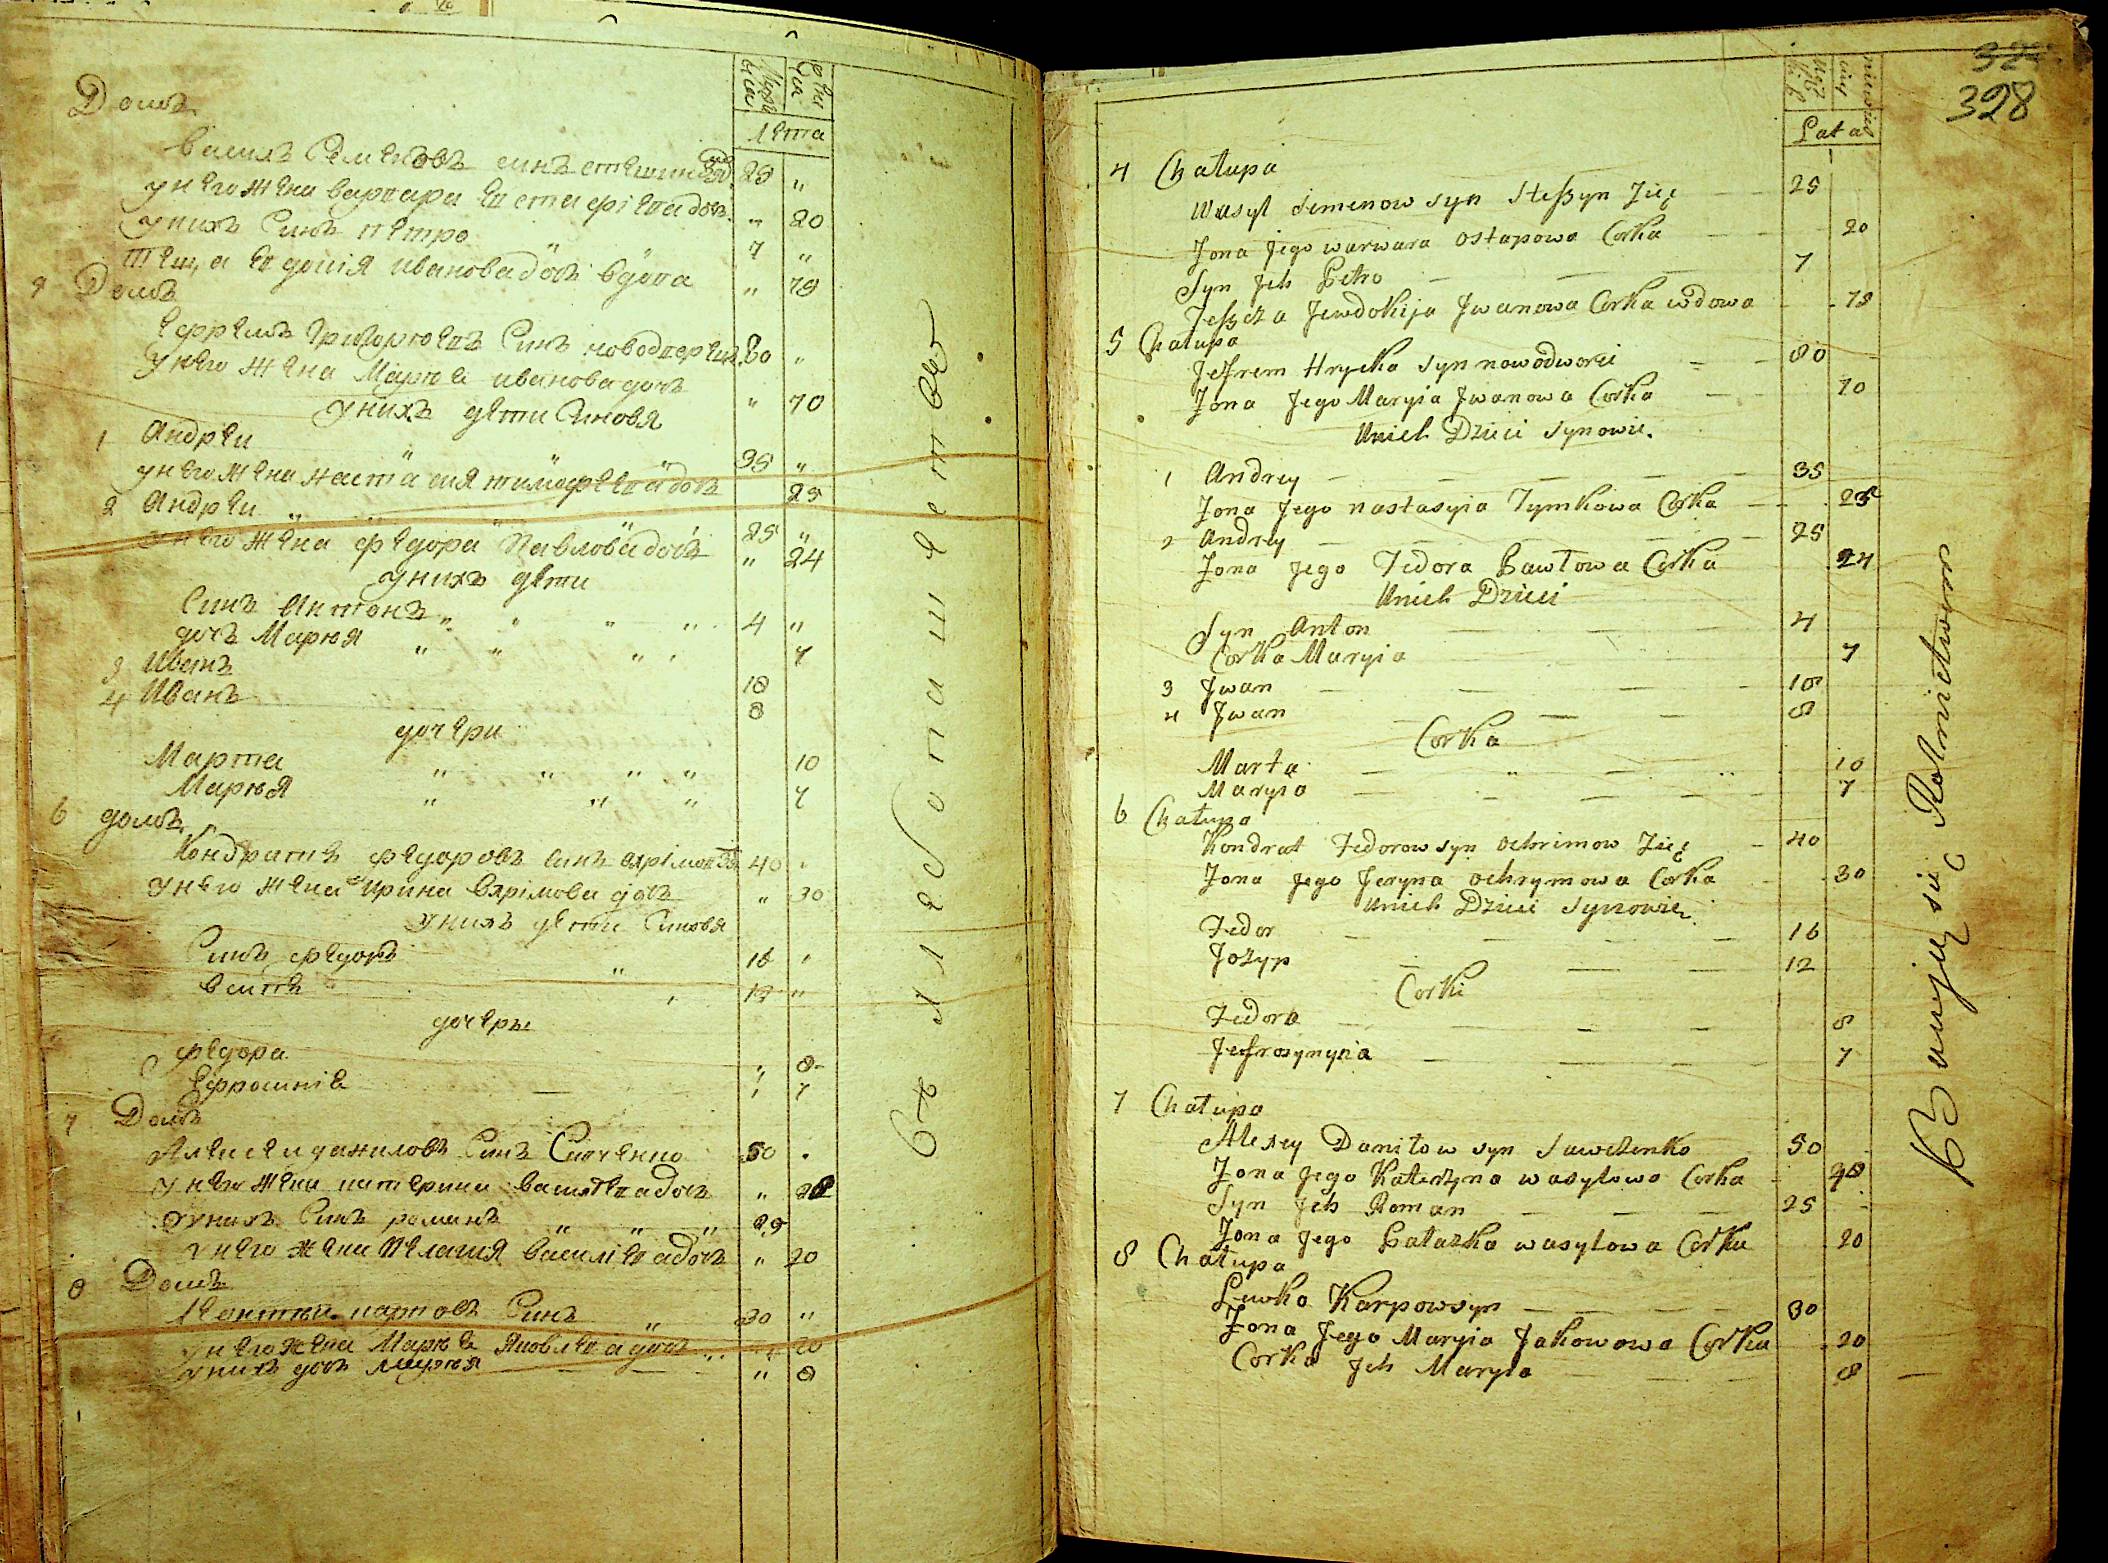 Домъ
Мужеска
Женска
лѣта
василъ Семеновъ синъ 25 "
у него жена варвара дочъ " 20
у нихъ Синъ петро 7 "
теща Ев докія иванова дочъ вдова " 78
Домъ
Ефремъ Григорьевъ Синъ 80 "
у него жена Марья иванова дочъ " 70
у нихъ дети Синовя
1 Андреи 35 "
у него жена настасия дочъ 25
2 Андреи 25 "
у него жена федора Павлова дочъ " 24
у нихъ дети
Синъ Антонъ " " " " 4 "
дочъ Марья " " " " 7
3 Иванъ 18
4 Иванъ 8
дочери
Марта " " " " 10
Марья " " " 7
6 домъ
Кондратъ федоровъ синъ 40 "
у него жена Ирина дочъ " 30
у нихъ дети Синовя
Синъ федоръ 16
12 "
дочеры
федора " 8
Ефросинія " 7
7 Домъ
Алексеи даниловъ Синъ Савченко 50
у него жена катерина дочъ "
у нихъ Синъ романъ " " " 25
у него жена Пелагия дочъ " 20
8 Домъ
карповъ Синъ " 30 "
у него жена Марья дочъ " 20
у нихъ дочъ марья " 8
хлебопашество
328
Lata
4 Chałupa
Wasyl Semenow syn Steszyn Zięć 25
Zona Jego warwara ostapowa Corka 20
Syn Jch Petro 7
Teszcza Jewdokija Jwanowa Corka wdowa 78
5 Chałupa
Jefrem Hrycka syn nowodworci 80
Zona Jego Maryia Jwanowa Corka 70
Unich Dzieci Synowie.
1 Andrey 35
Zona Jego nastasyia Tymkowa Corka 25
2 Andrey 25
Zona Jego Fedora Pawłowa Corka 24
Unich Dzieci
Syn Anton 4
Corka Maryia 7
3 Jwan 18
4 Jwan 8
Corka
Marta 10
Maryia 7
6 Chałupa
Kondrat Fedorow syn ochrimow Zięć 40
Zona Jego Jeryna ochrymowa Corka 30
Unich Dzieci Synowie
Fedor 16
Jozyp 12
Corki
Fedora 8
Jefrosynyia 7
7 Chałupa
Alexey Daniłow syn Sawczenko 50
Zona Jego Katerzyna wasylowa Corka
Syn Jch Roman 25
Zona Jego Pałazka wasylowa Corka 20
8 Chałupa
Lewko Karpow syn 30
Zona Jego Maryia Jakowowa Corka 20
Corka Jch Maryia 8
Bawiący się Rolnictwem